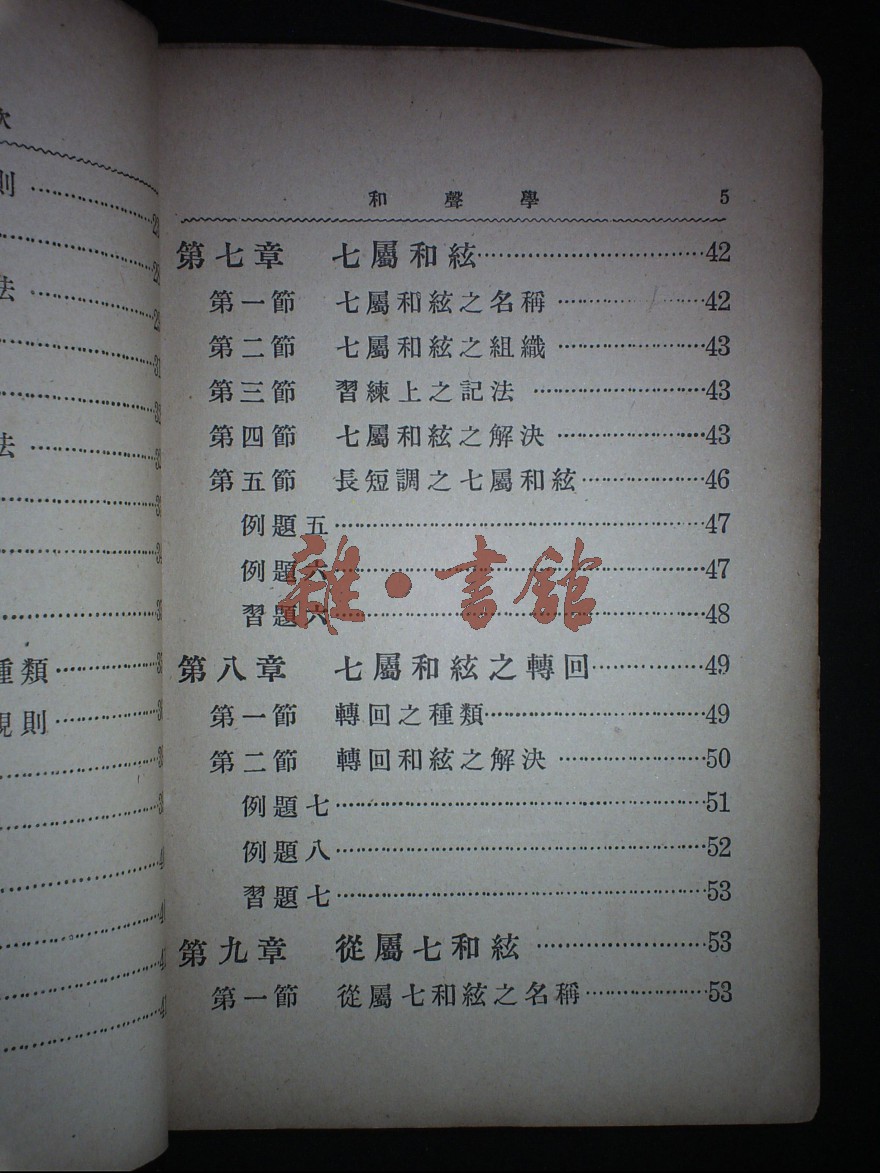 次
則
法
法
種類
規則
和聲學 5
第七章 七屬和絃……42
第一節 七屬和絃之名稱……42
第二節 七屬和絃之組織……43
第三節 習練上之記法……43
第四節 七屬和絃之解決……43
第五節 長短調之七屬和絃……46
例題五……47
例題六……47
習題六……48
第八章 七屬和絃之轉回……49
第一節 轉回之種類……49
第二節 轉回和絃之解決……50
例題七……51
例題八……52
習題七……53
第九章 從屬七和絃……53
第一節 從屬七和絃之名稱……53
雜·書館